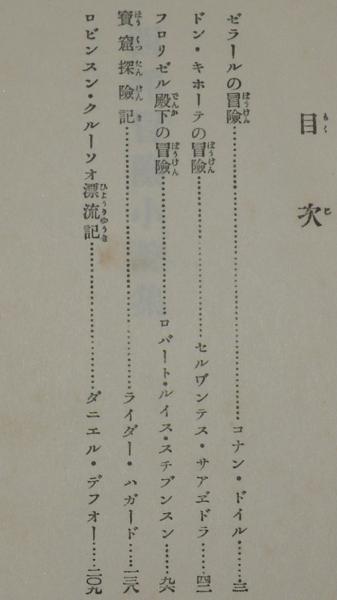 目次
ゼラールの冒險……コナン・ドイル……三
ドン・キホーテの冒險……セルヷンテス・サアヹドラ……四二
フロリゼル殿下の冒險……ロバート・ルイス・ステブンスン……九六
寶窟探險記……ライダー・ハガード……一三八
ロビンスン・クルーソオ漂流記……ダニエル・デフオー……二〇九